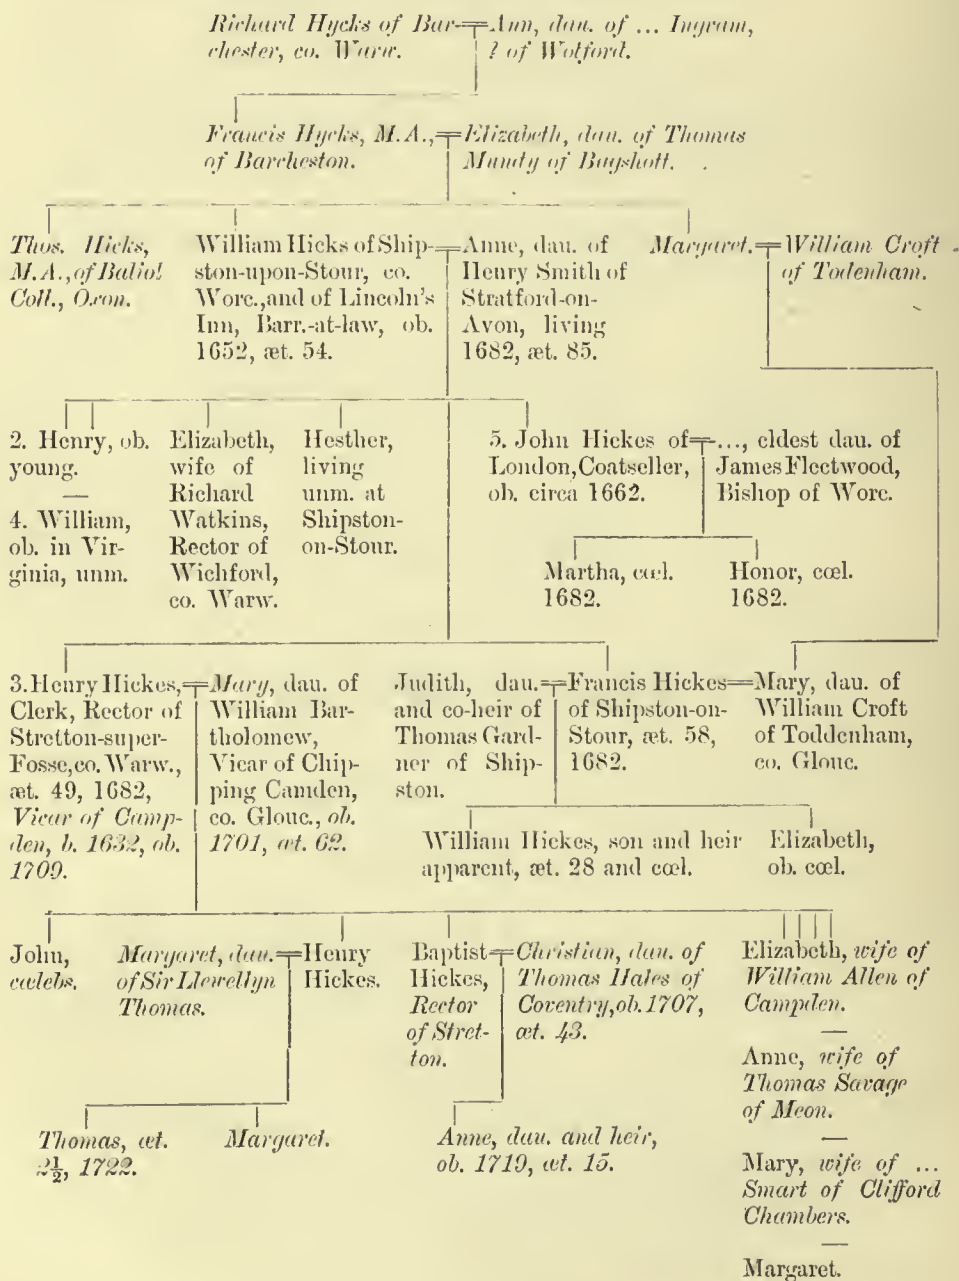 Richard Hycks of Bar-
chester, co. Warw.
Ann, dau. of ... Ingram,
? of Wolford.
Francis Hycks, M.A.,
of Barcheston.
Elizabeth, dau. of Thomas
Mundy of Bagshott.
Thos. Hicks,
M.A., of Baliol
Coll., Oxon.
William Hicks of Ship-
ston-upon-Stour, co.
Worc., and of Lincoln's
Inn, Barr.-at-law, ob.
1652, æt. 54.
Anne, dau. of
Henry Smith of
Stratford-on-
Avon, living
1682, æt. 85.
Margaret.
William Croft
of Todenham.
2. Henry, ob.
young.
—
4. William,
ob. in Vir-
ginia, unm.
Elizabeth,
wife of
Richard
Watkins,
Rector of
Wichford,
co. Warw.
Hesther,
living
unm. at
Shipston-
on-Stour.
5. John Hickes of
London, Coatseller,
ob. circa 1662.
..., eldest dau. of
James Fleetwood,
Bishop of Worc.
Martha, cœl.
1682.
Honor, cœl.
1682.
3. Henry Hickes,
Clerk, Rector of
Stretton-super-
Fosse, co. Warw.,
æt. 49, 1682,
Vicar of Camp-
den, b. 1632, ob.
1709.
Mary, dau. of
William Bar-
tholomew,
Vicar of Chip-
ping Camden,
co. Glouc., ob.
1701, æt. 62.
Judith, dau.
and co-heir of
Thomas Gard-
ner of Ship-
ston.
Francis Hickes
of Shipston-on-
Stour, æt. 58,
1682.
Mary, dau. of
William Croft
of Toddenham,
co. Glouc.
William Hickes, son and heir
apparent, æt. 28 and cœl.
Elizabeth,
ob. cœl.
John,
cælebs.
Margaret, dau.
of Sir Llewellyn
Thomas.
Henry
Hickes.
Baptist
Hickes,
Rector
of Stret-
ton.
Christian, dau. of
Thomas Hales of
Coventry, ob. 1707,
æt. 43.
Elizabeth, wife of
William Allen of
Campden.
—
Anne, wife of
Thomas Savage
of Meon.
—
Mary, wife of ...
Smart of Clifford
Chambers.
—
Margaret.
Thomas, æt.
2½, 1722.
Margaret.
Anne, dau. and heir,
ob. 1719, æt. 15.